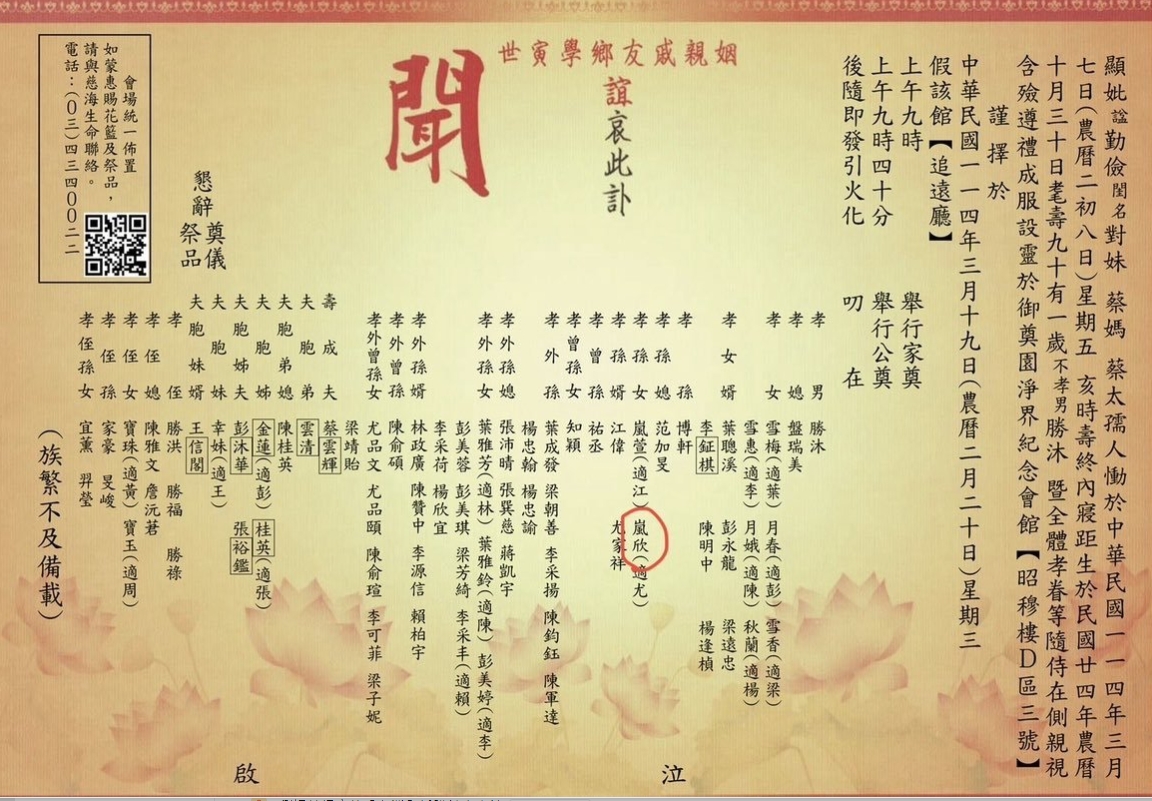 顯妣 諡勤儉 閨名對妹 蔡媽 蔡太孺人慟於中華民國一一四年三月
七日(農曆二初八日)星期五 亥時壽終內寢距生於民國廿四年農曆
十月三十日耄壽九十有一歲不孝男勝沐 暨全體孝眷等隨侍在側親視
含殮遵禮成服設靈於御奠園淨界紀念會館【昭穆樓D區三號】
謹擇於
中華民國一一四年三月十九日(農曆二月二十日)星期三
假該館【追遠廳】
上午九時 舉行家奠
上午九時四十分 舉行公奠
後隨即發引火化 叨在
世寅學鄉友戚親姻
誼哀此訃
聞
懇辭 奠儀 祭品
會場統一佈置
如蒙惠賜花籃及祭品,
請與慈海生命聯絡。
電話:(０三)四三四００二二
孝男 勝沐
孝媳 盤瑞美
孝女 雪梅(適葉) 月春(適彭) 雪香(適梁)
雪惠(適李) 月娥(適陳) 秋蘭(適楊)
孝女婿 葉聰溪 彭永龍 梁遠忠
李鉦棋 陳明中 楊逢楨
孝孫 博軒
孝孫媳 范加旻
孝孫女 嵐萱(適江) 嵐欣(適尤)
孝孫婿 江偉 尤家祥
孝曾孫 祐丞
孝曾孫女 知穎
孝外孫 葉成發 梁朝善 李采揚 陳鈞鈺 陳軍達
楊忠翰 楊忠諭
孝外孫媳 張沛晴 張巽慈 蔣凱宇
孝外孫女 葉雅芳(適林) 葉雅鈴(適陳) 彭美婷(適李)
彭美蓉 彭美琪 梁芳綺 李采丰(適賴)
李采荷 楊欣宜
孝外孫婿 林政廣 陳贊中 李源信 賴柏宇
孝外曾孫 陳俞碩
孝外曾孫女 尤品文 尤品頤 陳俞瑄 李可菲 梁子妮
梁靖貽
壽成夫 蔡雲輝
夫胞弟 雲清
夫胞弟媳 陳桂英
夫胞姊 金蓮(適彭) 桂英(適張)
夫胞姊夫 彭沐華 張裕鑑
夫胞妹 幸妹(適王)
夫胞妹婿 王信閣
孝侄 勝洪 勝福 勝祿
孝侄媳 陳雅文 詹沅莙
孝侄女 寶珠(適黃) 寶玉(適周)
孝侄孫 家豪 旻峻
孝侄孫女 宜薰 羿瑩
(族繁不及備載)
泣
啟